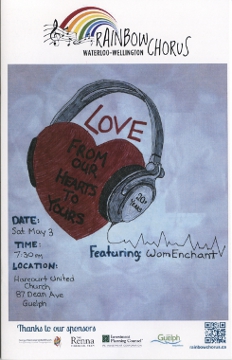 RAINBOW CHORUS
WATERLOO-WELLINGTON
LOVE
FROM
OUR
HEARTS
TO
YOURS
20+
YEARS
DATE:
Sat May 3
TIME:
7:30pm
LOCATION:
Harcourt United
Church
87 Dean Ave
Guelph
Featuring: WomEnchant
Thanks to our sponsors
Renna
Investment
Planning Counsel
Guelph
rainbowchorus.ca